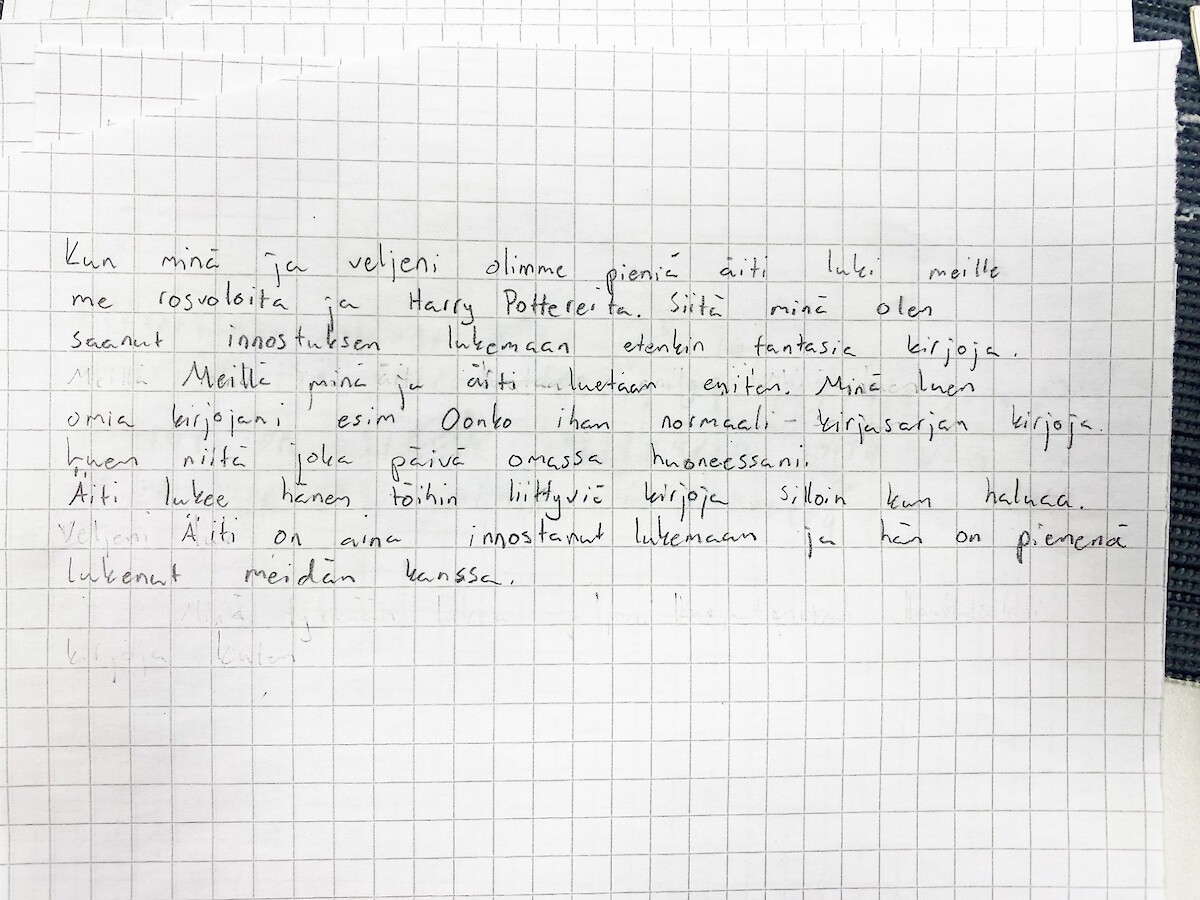 Kun minä ja veljeni olimme pieniä äiti luki meille
me rosvoloita ja Harry Pottereita. Siitä minä olen
saanut innostuksen lukemaan etenkin fantasia kirjoja.
Meillä Meillä minä ja äiti luetaan eniten. Minä luen
omia kirjojani esim Oonko ihan normaali - kirjasarjan kirjoja.
Luen niitä joka päivä omassa huoneessani.
Äiti lukee hänen töihin liittyviä kirjoja silloin kun haluaa.
Veljeni Äiti on aina innostanut lukemaan ja hän on pienenä
lukenut meidän kanssa.
Minä
kirjoja kuten